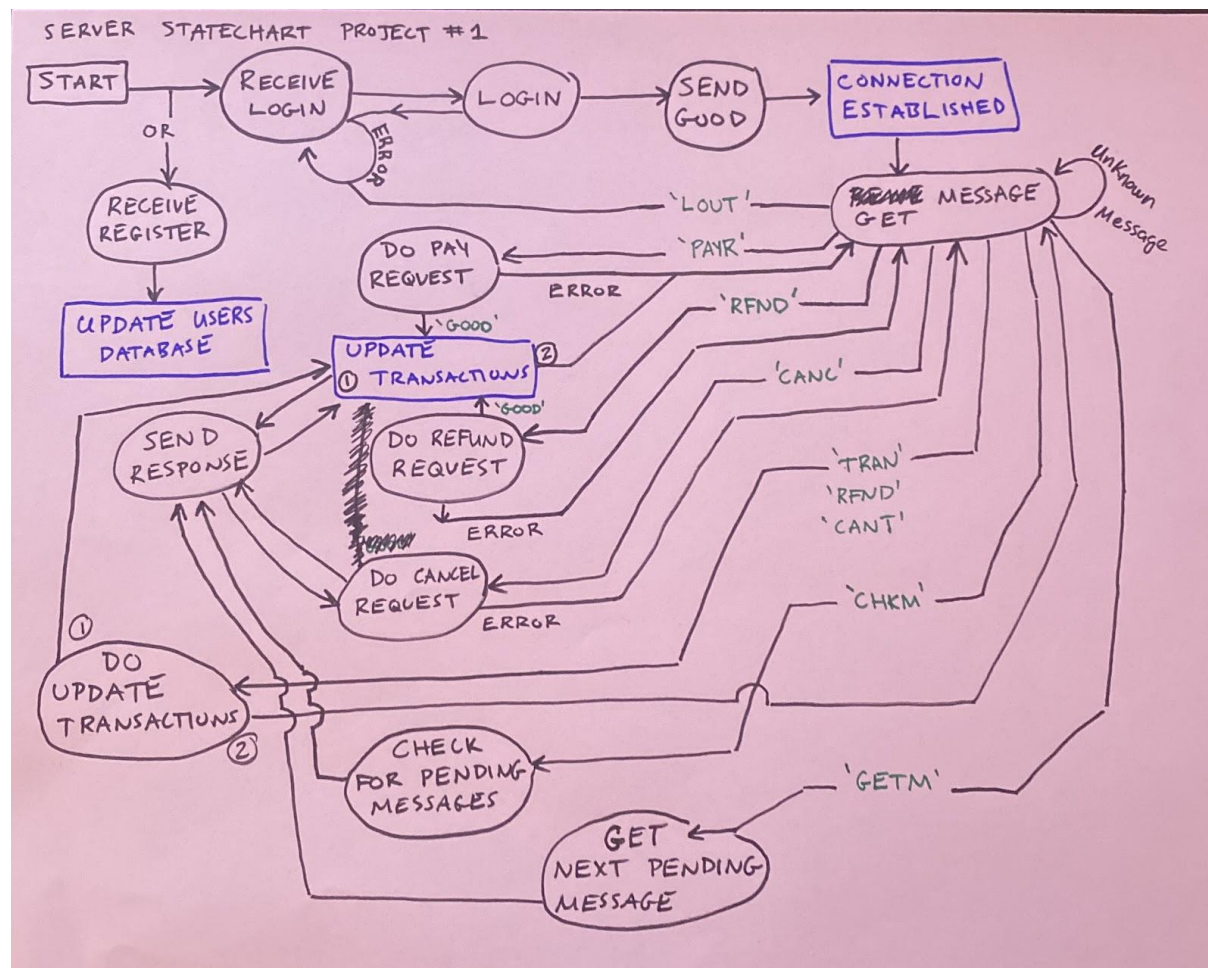 SERVER STATECHART PROJECT #1
START
OR
RECEIVE
LOGIN
ERROR
LOGIN
SEND
GOOD
CONNECTION
ESTABLISHED
RECEIVE
REGISTER
UPDATE USERS
DATABASE
MESSAGE
GET
Unknown
Message
'LOUT'
'PAYR'
DO PAY
REQUEST
ERROR
'GOOD'
'RFND'
UPDATE
② 
① TRANSACTIONS
'CANC'
'GOOD'
SEND
RESPONSE
DO REFUND
REQUEST
ERROR
'TRAN'
'RFND'
'CANT'
DO CANCEL
REQUEST
ERROR
'CHKM'
①
DO
UPDATE
TRANSACTIONS
②
CHECK
FOR PENDING
MESSAGES
'GETM'
GET
NEXT PENDING
MESSAGE